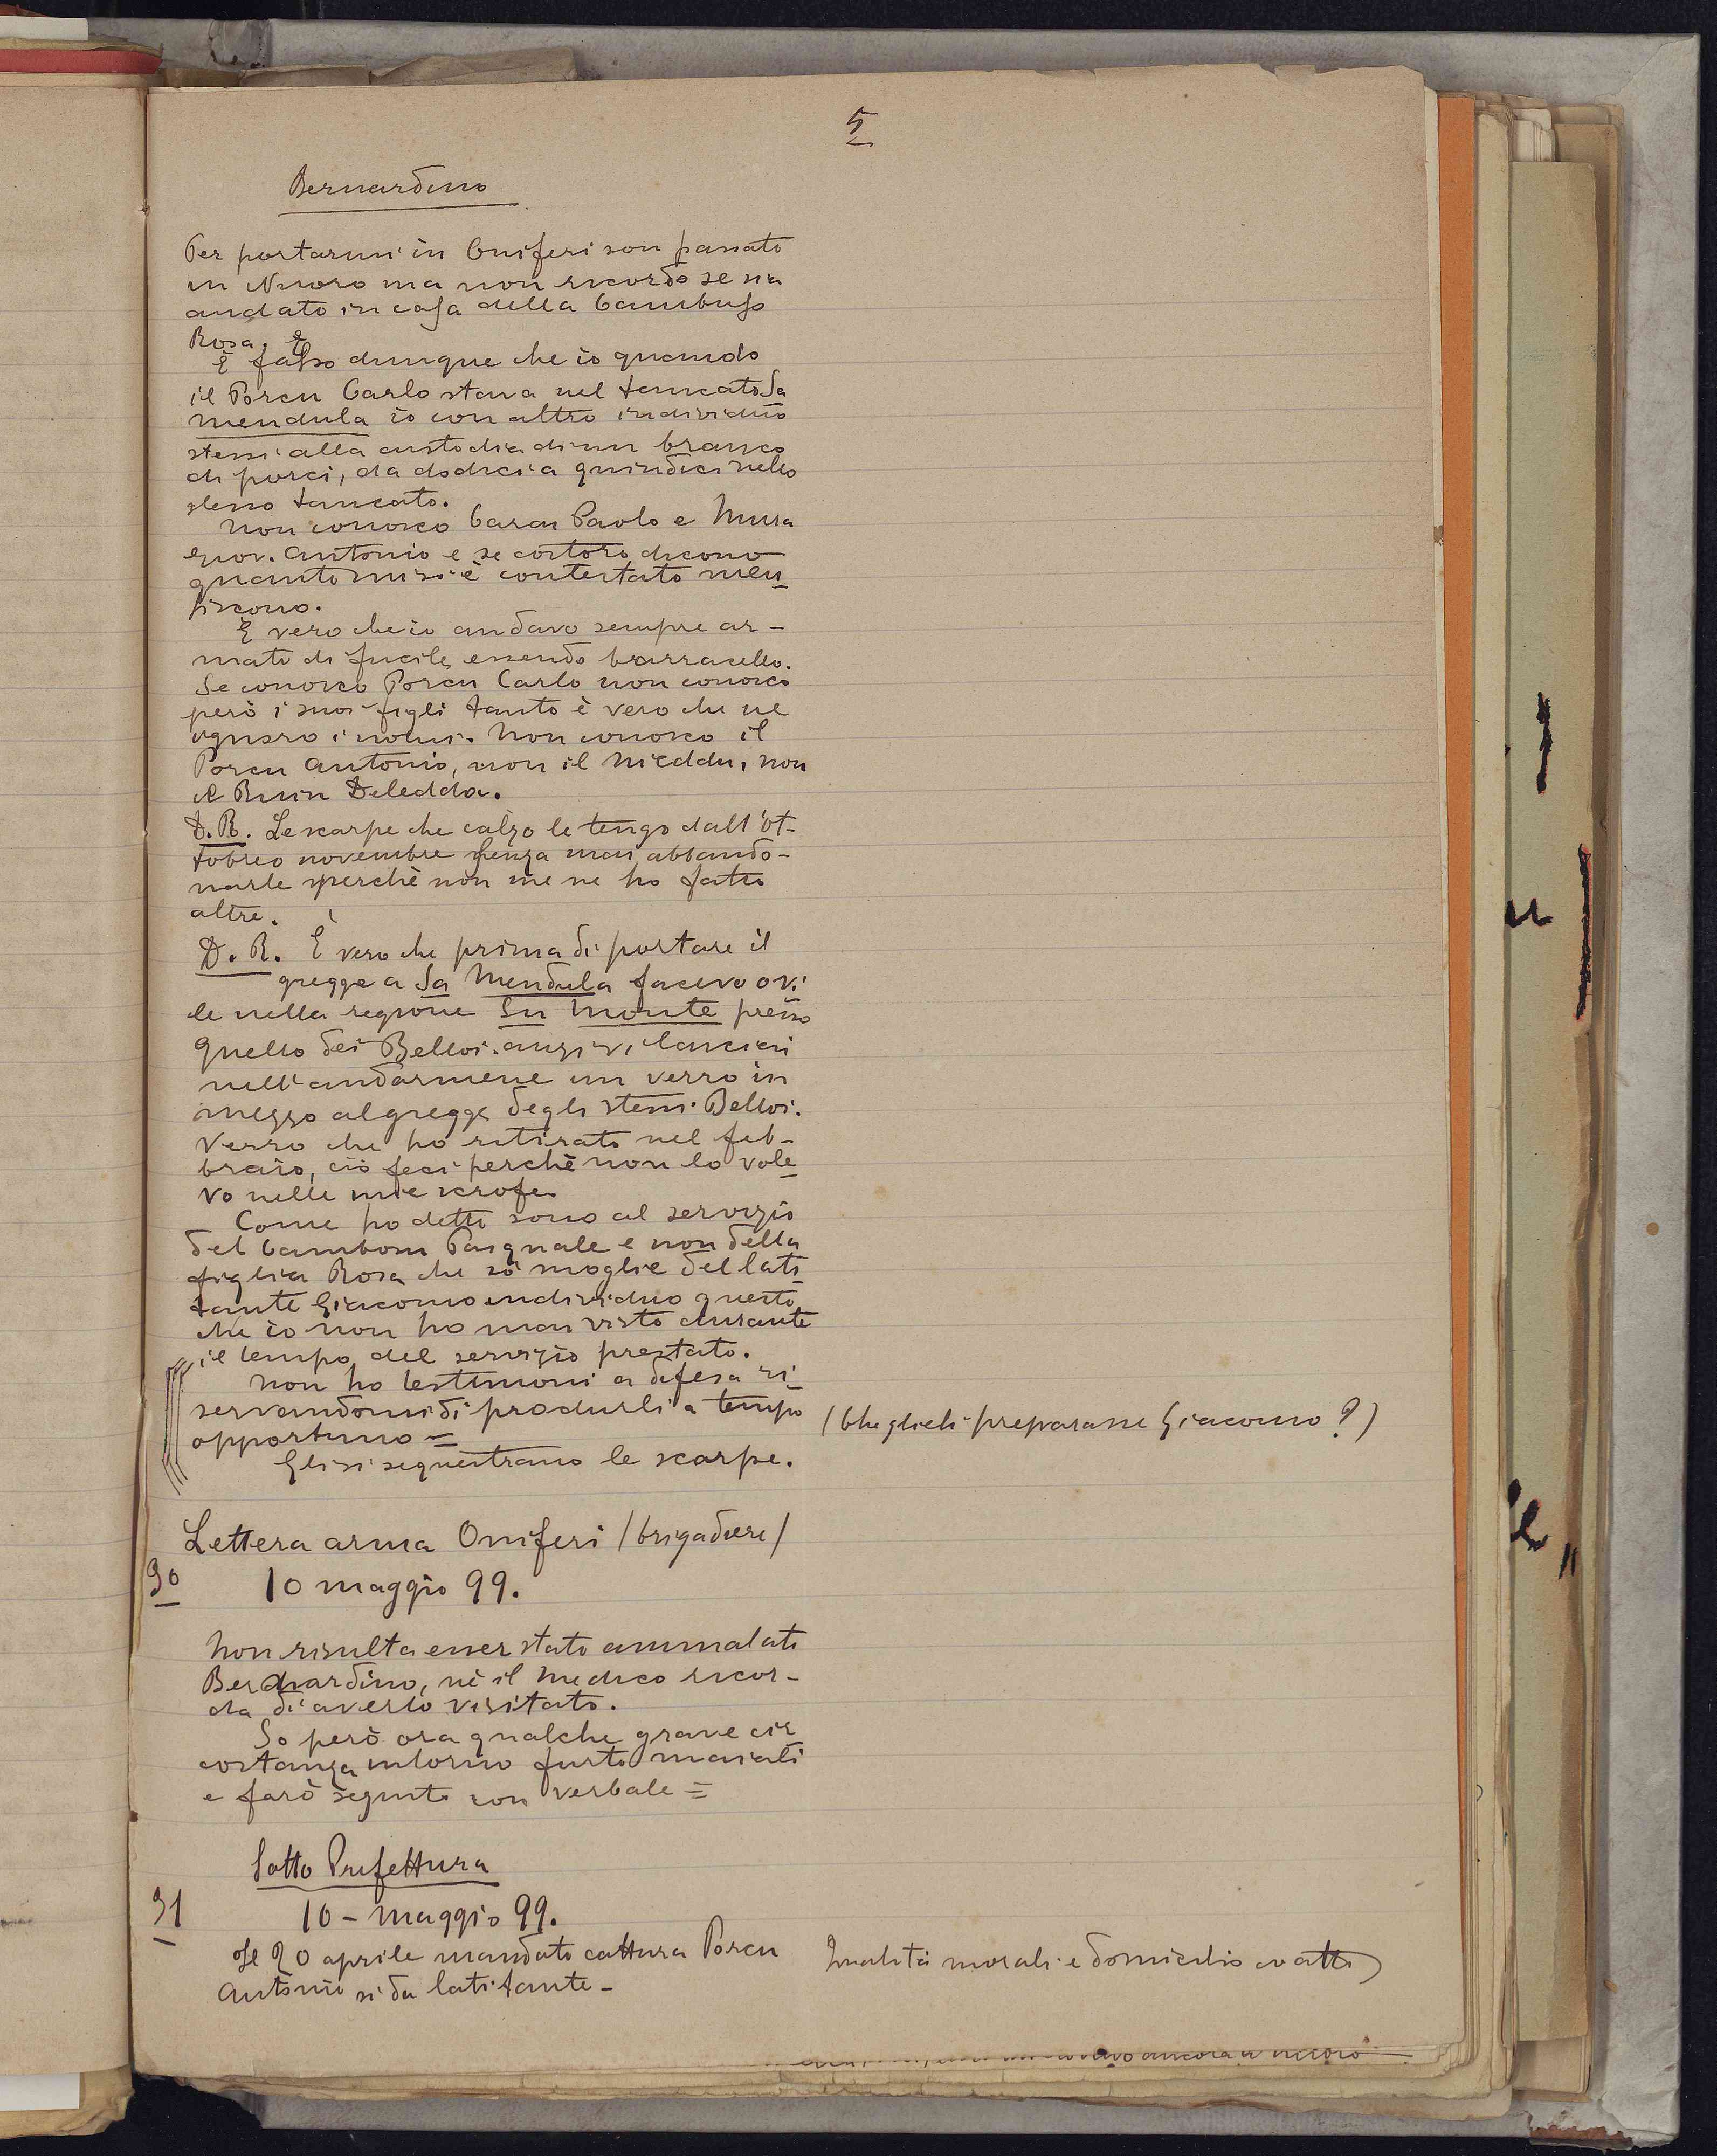 5
Bernardino
Per portarmi in Oniferi son passato
in Nuoro ma non ricordo se sia
andato in casa della Cambuso
Rosa.
È falso dunque che io quando
il Porcu Carlo stava nel tancato Sa
mendula io con altro individuo
stessi alla custodia di un branco
di porci, da dodici a quindici nello
stesso tancato.
Non conosco Carcu Paolo e Mura
Giov. Antonio e se costoro dicono
quanto mi si è contestato men-
tiscono.
È vero che io andavo sempre ar-
mato di fucile, essendo barracello.
Se conosco Porcu Carlo non conosco
però i suoi figli tanto è vero che ne
ignoro i nomi. Non conosco il
Porcu Antonio, non il Nieddu, non
il Ruiu Deledda.
D. R. Le scarpe che calzo le tengo dall'ot-
tobre o novembre senza mai abbando-
narle perchè non me ne ho fatto
altre.
D. R. È vero che prima di portare il
gregge a Sa Mendula facevo ovi
le nella regione Su Monte presso
quello dei Belloi. anzi vi lasciai
nell'andarmene un verro in
mezzo al gregge degli stessi Belloi.
Verro che ho ritirato nel feb-
braio, ciò feci perchè non lo vole-
vo nelle mie scrofe.
Come ho detto sono al servizio
del Camboni Pasquale e non della
figlia Rosa che so moglie del lati-
tante Giacomo individuo questo
che io non ho mai visto durante
il tempo del servizio prestato.
Non ho testimoni a difesa ri-
servandomi di produrli a tempo
opportuno =
(Che glieli preparasse Giacomo?)
Gli si sequestrano le scarpe.
Lettera arma Oniferi (brigadiere)
30 10 maggio 99.
Non risulta esser stato ammalato
Bernardino, nè il Medico ricor-
da di averlo visitato.
So però ora qualche grave cir
costanza intorno furto maiali
e farò seguito con verbale =
Sotto Prefettura
31 10 - Maggio 99.
Il 20 aprile mandato cattura Porcu
Antonio si da latitante -
Qualità morali e domicilio coatto)
ancora a Nuoro